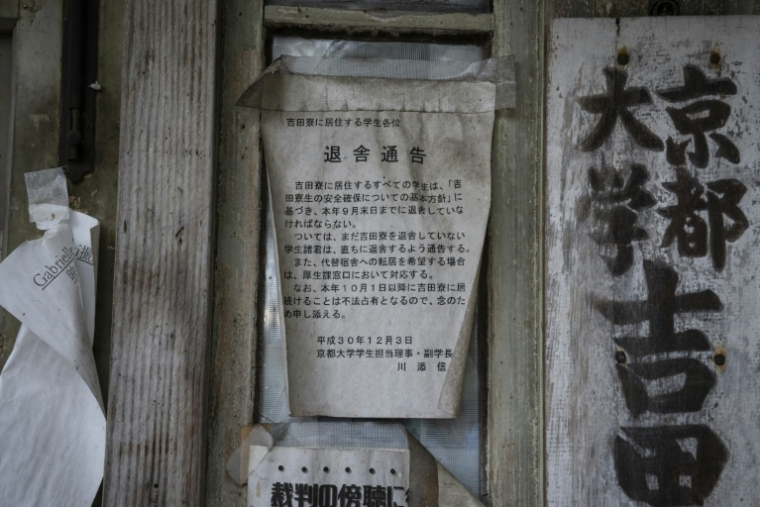 吉田寮に居住する学生各位
退舎通告
吉田寮に居住するすべての学生は、「吉
田寮生の安全確保についての基本方針」に
基づき、本年9月末日までに退舎していな
ければならない。
ついては、まだ吉田寮を退舎していない
学生諸君は、直ちに退舎するよう通告する。
また、代替宿舎への転居を希望する場合
は、厚生課窓口において対応する。
なお、本年10月1日以降に吉田寮に居
続けることは不法占有となるので、念のた
め申し添える。
平成30年12月3日
京都大学学生担当理事・副学長
川添信
裁判の傍聴に
京都
大学
吉田
Gabriell